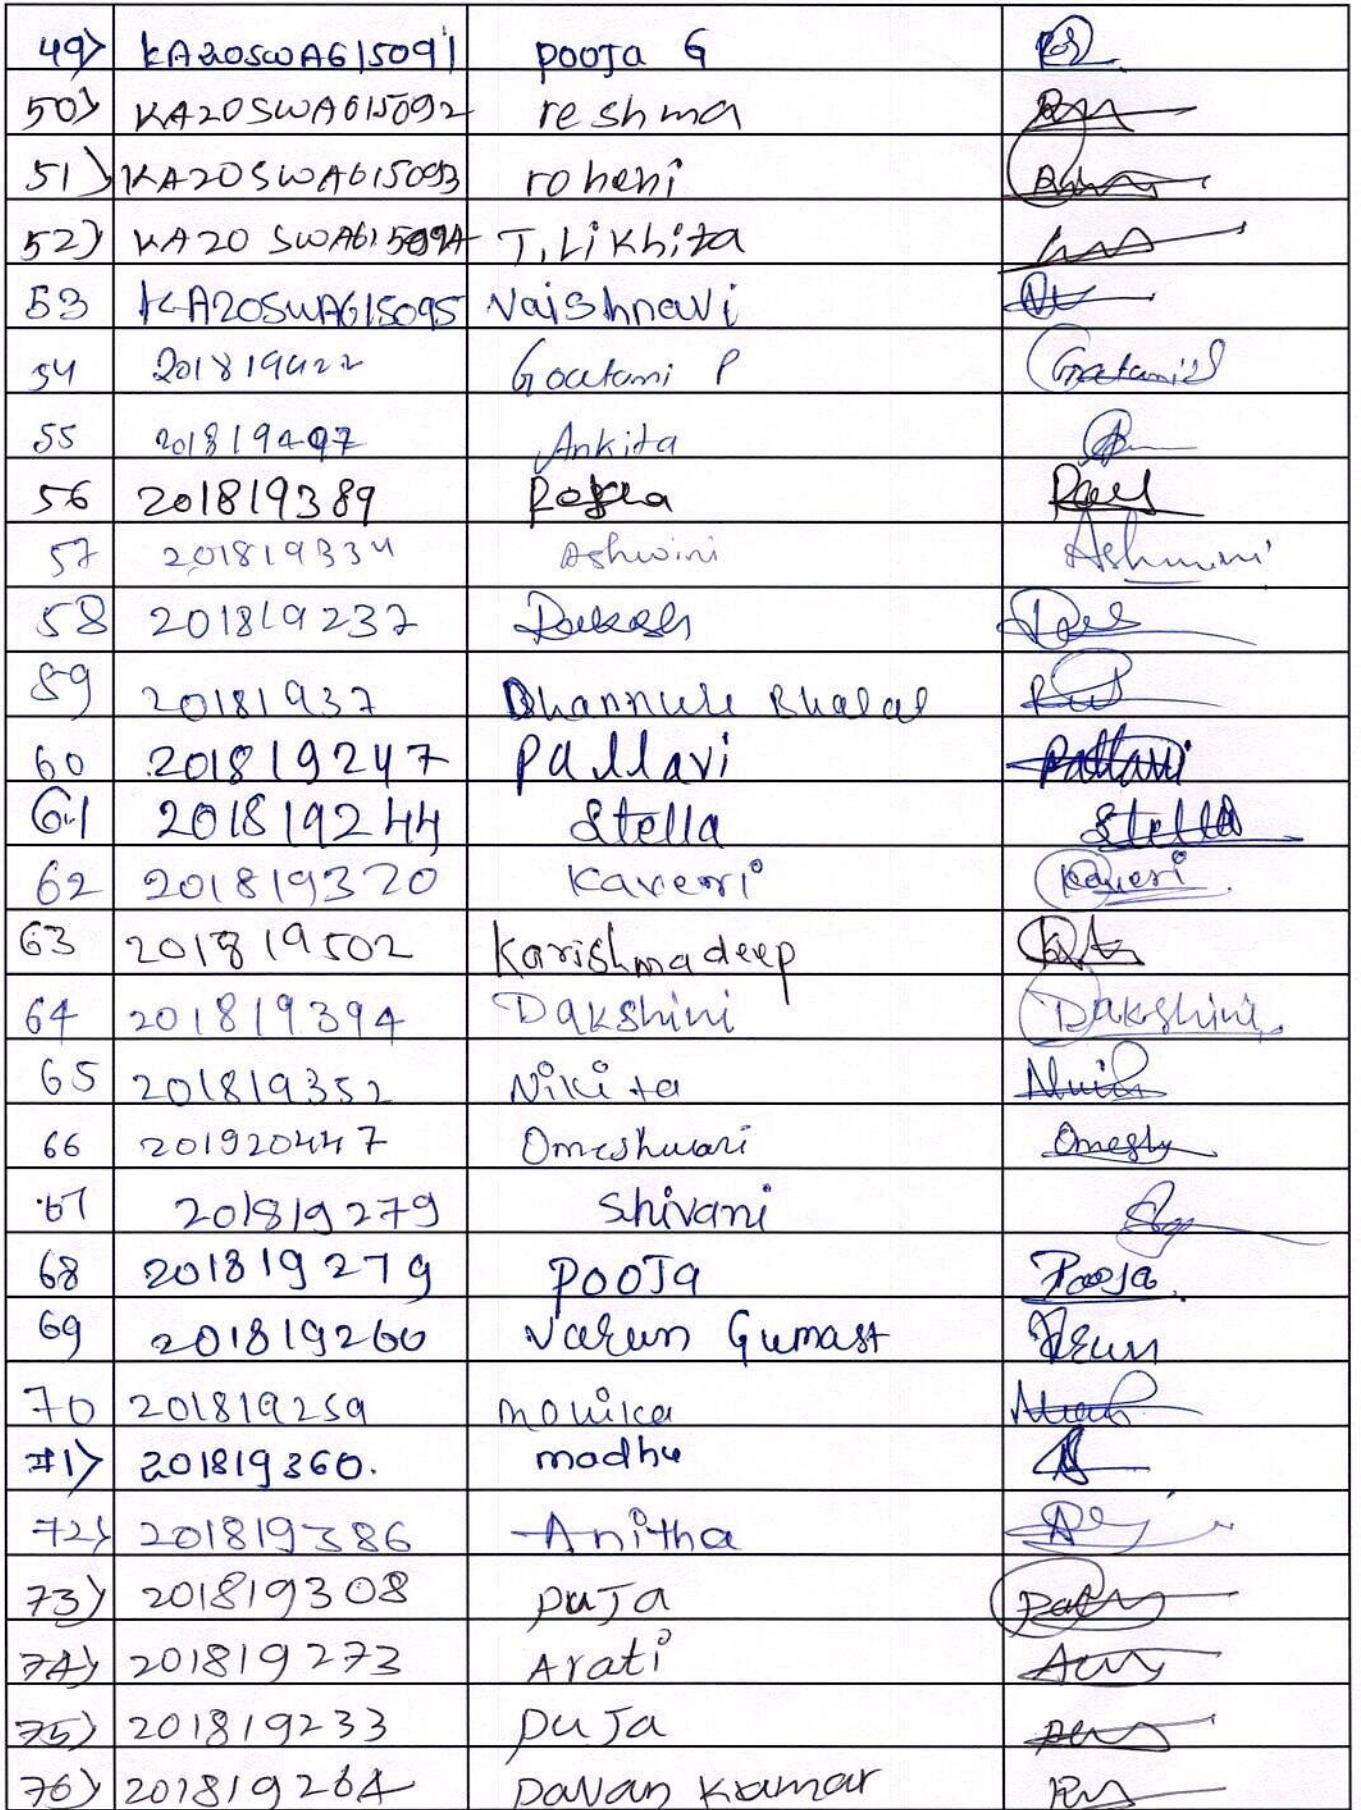 49) KA20SWA615091 POOJA G
50) KA20SWA615092 reshma
51) KA20SWA615093 roheni
52) KA20 SWA615094 T. Likhita
53 KA20SWA615095 Vaishnavi
54 201819422 Goutami P Goutami
55 201819497 Ankita
56 201819389
57 201819334 Ashwini Ashwini
58 201819237
59 20181937
60 201819247 Pallavi Pallavi
61 201819244 Stella Stella
62 201819320 Kaveri Kaveri
63 201819502 Karishmadeep
64 201819394 Dakshini Dakshini
65 201819352 Nikita
66 201920447 Omeshwari Omesh
67 201819279 Shivani
68 201819279 POOJA Pooja
69 201819260 Varun Gumast Varun
70 201819259 monika
71) 201819360. madhu
72) 201819386 Anitha
73) 201819308 PUJA
74) 201819273 Arati
75) 201819233 PUJA
76) 201819264 Pavan Kumar